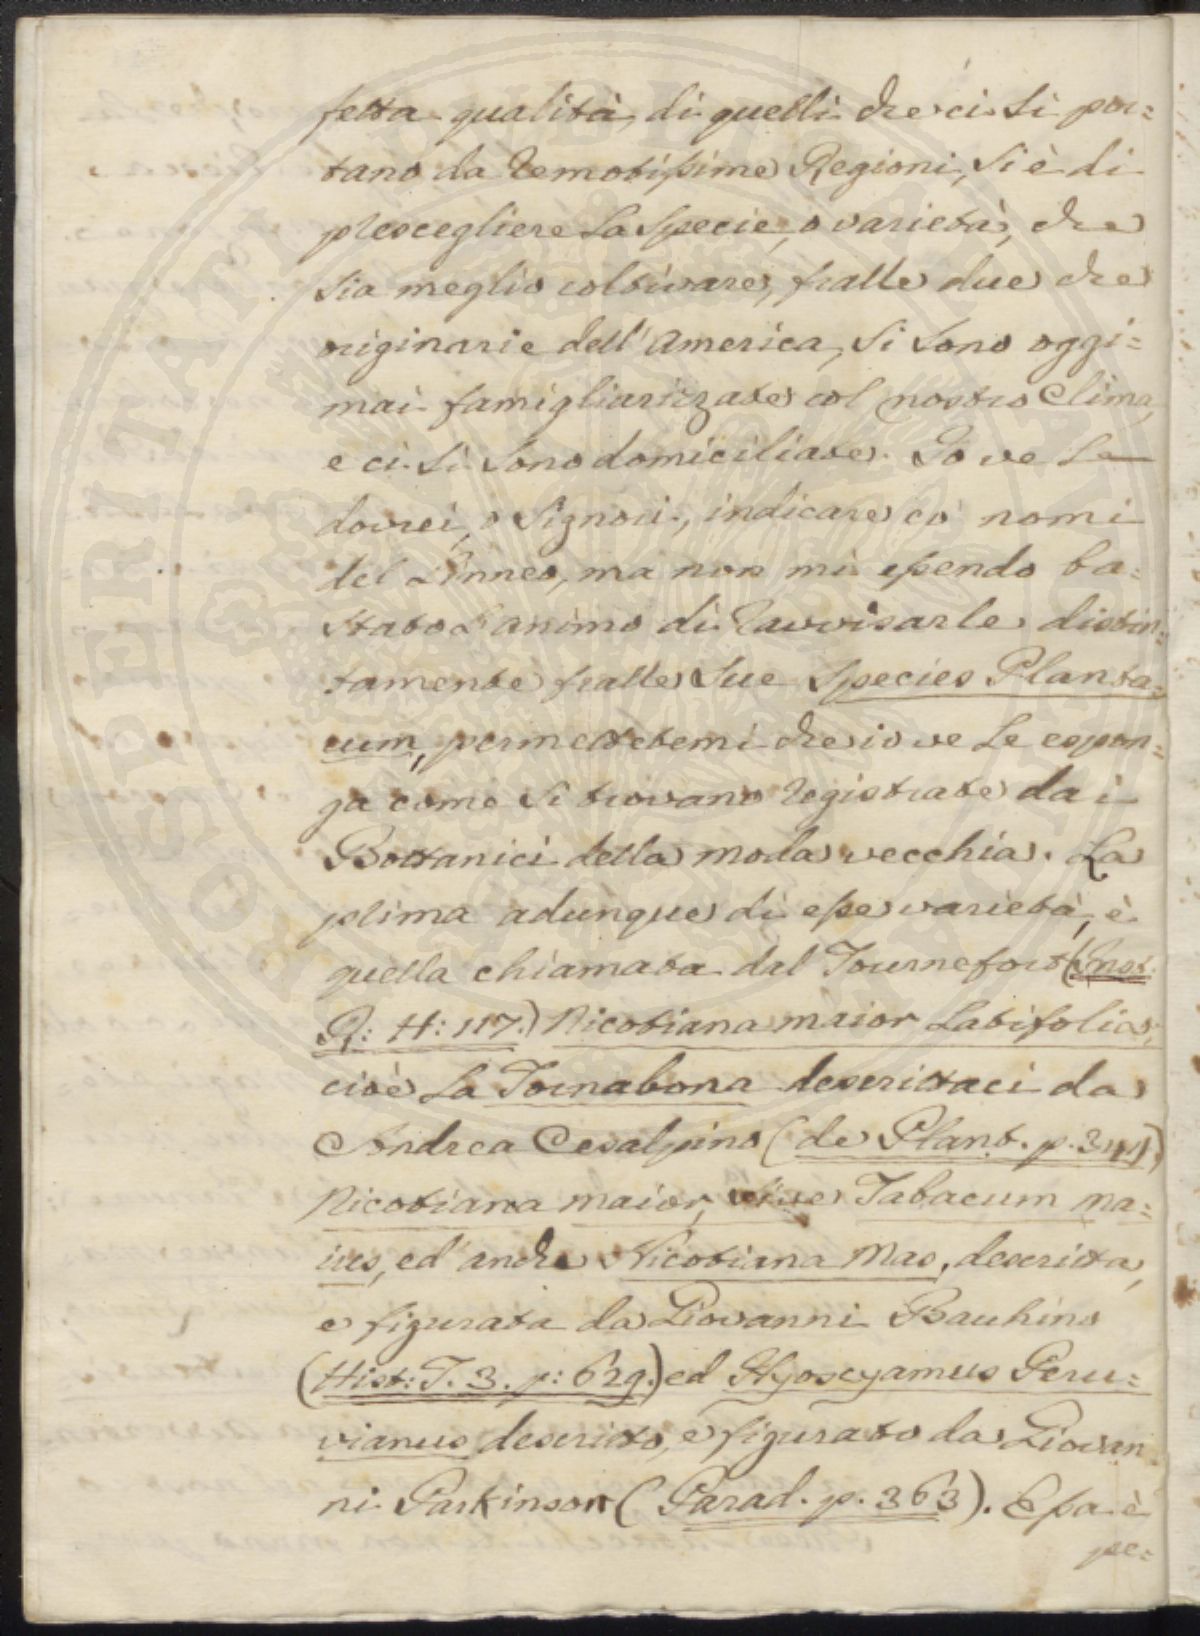 fetta qualità, di quelli che ci si por=
tano da remotissime Regioni, si è di
prescegliere la specie, o varietà, che
sia meglio coltivare, fralle due che
originarie dell'America, si sono oggi=
mai famigliarizzate col nostro Clima,
e ci si sono domiciliate. Io ve le
dovrei, o Signori, indicare co' nomi
del Linneo, ma non mi essendo ba=
stato l'animo di ravvisarle distin=
tamente fralle sue Species Planta=
rum, permettetemi che io ve le espon=
ga come si trovano registrate dai
Bottanici della moda vecchia. La
prima adunque di esse varietà, è
quella chiamata dal Tournefort (Inst.
R: H: 117.) Nicotiana maior Latifolia,
cioè la Tornabona descrittaci da
Andrea Cesalpino (de Plant. p. 344.)
Nicotiana maior, sive Tabacum ma=
ius, ed anche Nicotiana Mas, descritta,
e figurata da Giovanni Bauhino
(Hist: T. 3. p: 629.) ed Hyoscyamus Peru=
vianus descritto, e figurato da Giovan
ni Parkinson (Parad. p. 363). Essa è
pe=